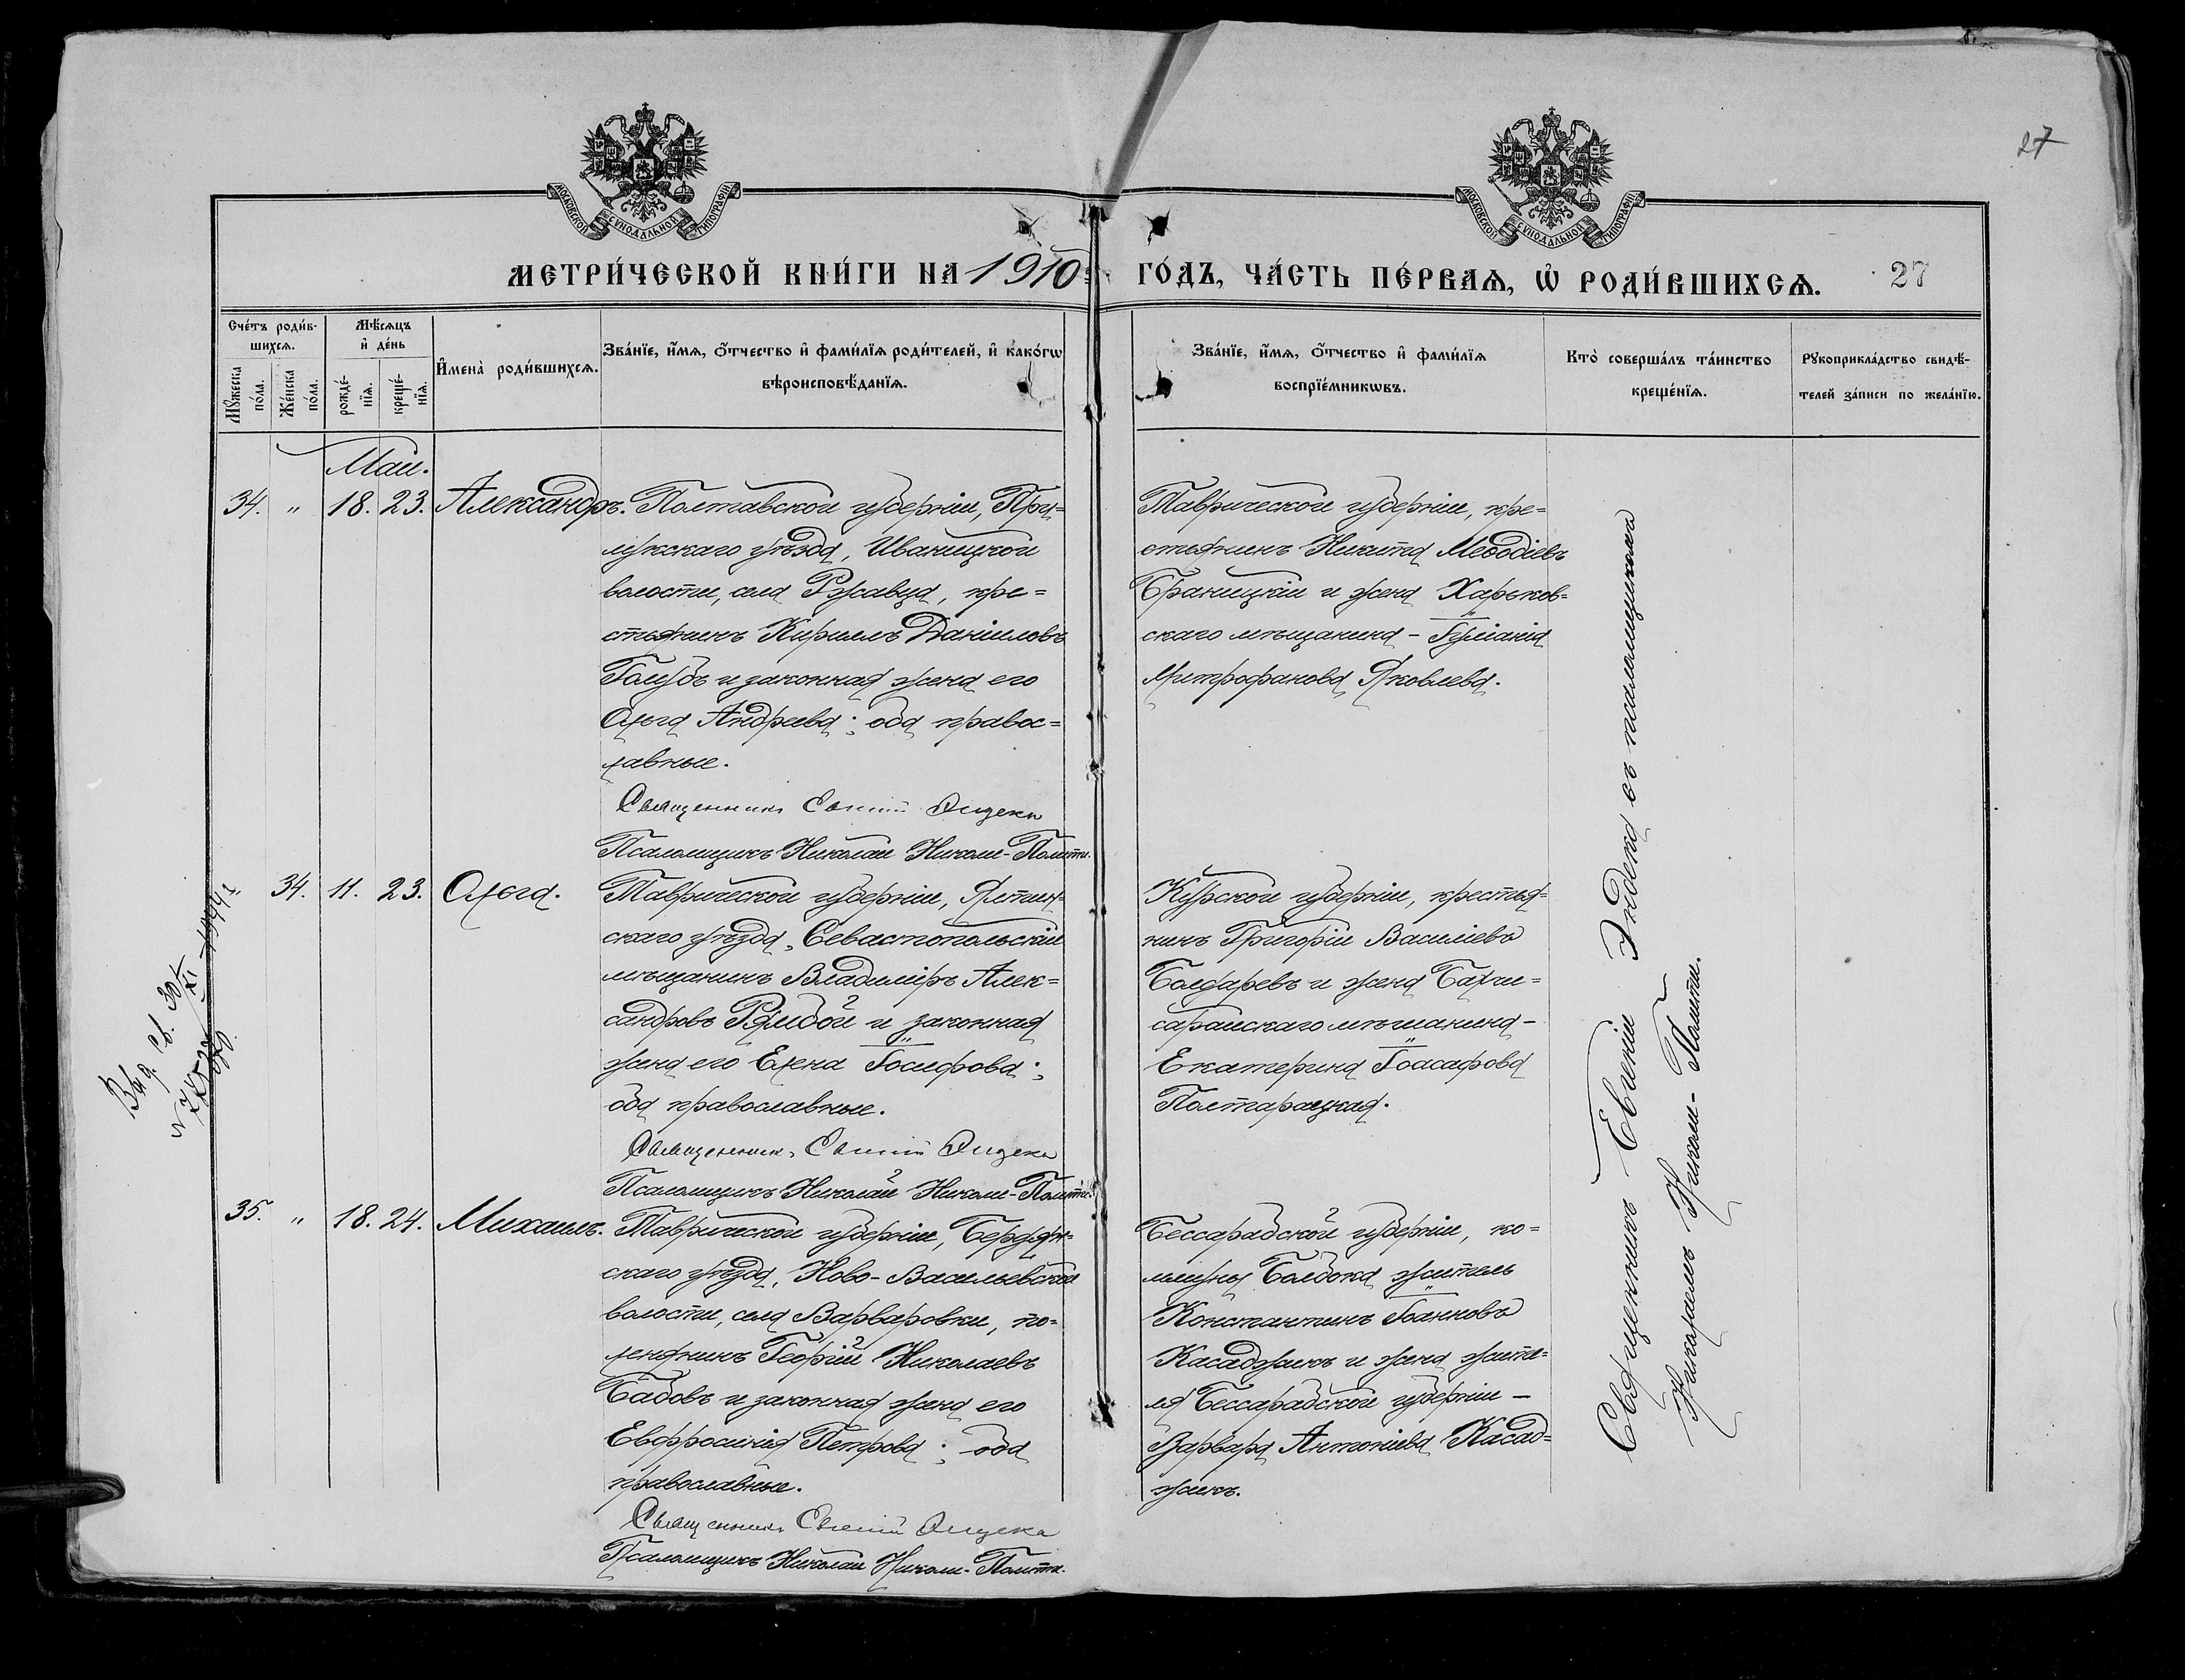 27
МОСКОВСКОЙ СѴНОДАЛЬНОЙ ТИПОГРАФІИ
МОСКОВСКОЙ СѴНОДАЛЬНОЙ ТИПОГРАФІИ
МЕТРИ́ЧЕСКОЙ КНИ́ГИ НА 1910 ГО́ДЪ, ЧА́СТЬ ПЕ́РВАѦ, Ѽ РОДИ́ВШИХСѦ. 27
Сче́тъ роди́в-
шихсѧ.
Мꙋ́жеска по́ла.
Же́нска по́ла.
Мѣ́сѧцъ
и҆ де́нь
рожде́-
нїѧ.
креще́-
нїѧ.
И҆мена̀ роди́вшихсѧ.
Зва́нїе, и҆́мѧ, ѻ҆́тчество и҆ фами́лїѧ роди́телей, и҆ како́гѡ
вѣроисповѣ́данїѧ.
Зва́нїе, и҆́мѧ, ѻ҆́тчество и҆ фами́лїѧ
воспрїе́мникѡвъ.
Кто̀ соверша́лъ та́инство
креще́нїѧ.
Рꙋкоприкла́дство свидѣ́-
телей за́писи по жела́нїю.
Май.
34. " 18. 23. Александръ.
Полтавской губерніи, При-
лукскаго уѣзда, Иваницкой
волости, села Ржавца, кре=
стьянинъ Кириллъ Даніиловъ
Голубъ и законная жена его
Ольга Андреева; оба правос=
лавные.
Священникъ Евгеній Эндека
Псаломщикъ Николай Николи-Политi.
Таврической губерніи, кре=
стьянинъ Никита Меѳодіевъ
Браницкій и жена Харьков-
скаго мѣщанина - Іуліанія
Митрофанова Яковлева.
" 34. 11. 23. Ольга.
Таврической губерніи, Ялтин-
скаго уѣзда, Севастопольскій
мѣщанинъ Владиміръ Алек=
сандровъ Рябой и законная
жена его Елена Іосифова;
оба православные.
Священникъ Евгеній Эндека
Псаломщикъ Николай Николи-Политi.
Курской губерніи, крестья-
нинъ Григорій Василіевъ
Болдаревъ и жена Бахчи=
сарайскаго мѣщанина -
Екатерина Іоасафова
Полтарацкая.
35. " 18. 24. Михаилъ.
Таврической губерніи, Бердян-
скаго уѣзда, Ново-Васильевской
волости, села Варваровки, по-
селянинъ Георгій Николаевъ
Бабовъ и законная жена его
Евфросинія Петрова; оба
православные.
Священникъ Евгеній Эндека
Псаломщикъ Николай Николи-Политi.
Бессарабской губерніи, ко=
лоніи Болбока житель
Константинъ Іоанновъ
Касаджикъ и жена жите=
ля Бессарабской губерніи -
Варвара Антоніева Касад=
жикъ.
Священникъ Евгеній Эндека съ псаломщикомъ
Николаемъ Николи-Политi.